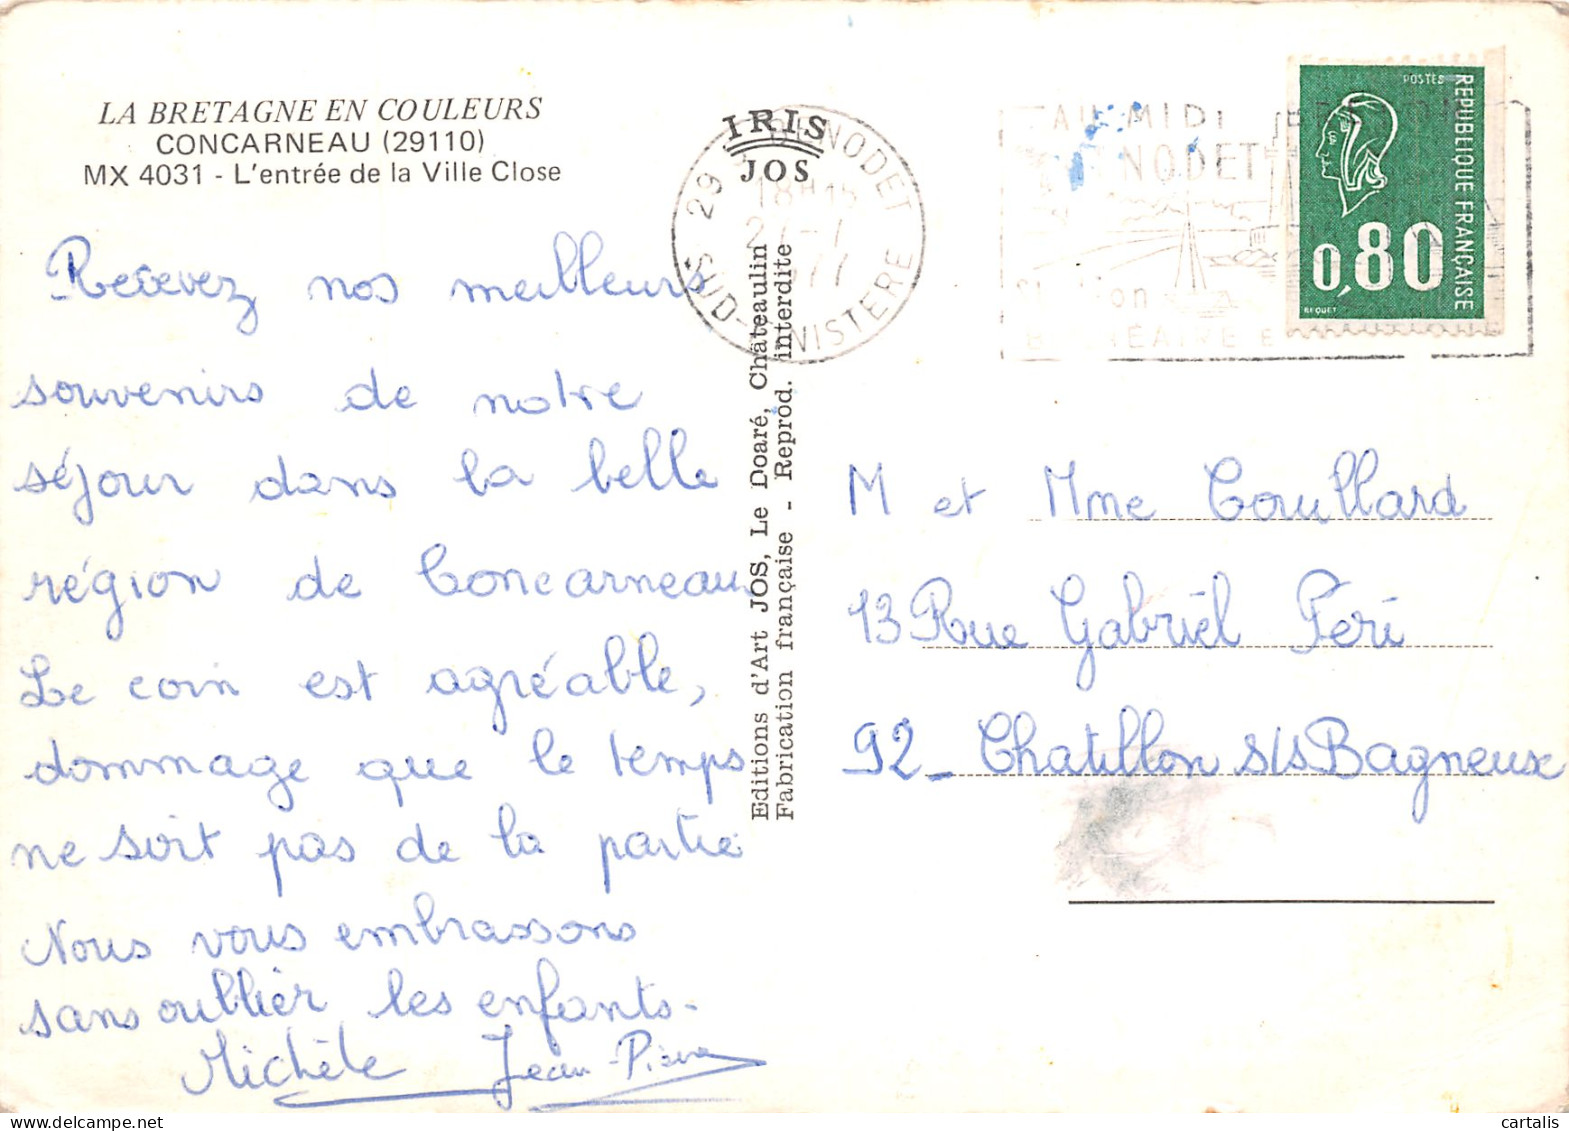 LA BRETAGNE EN COULEURS
CONCARNEAU (29110)
MX 4031 - L'entrée de la Ville Close
Recevez nos meilleurs
souvenirs de notre
séjour dans la belle
région de Concarneau
Le coin est agréable,
dommage que le temps
ne soit pas de la partie
Nous vous embrassons
sans oublier les enfants-
Michèle Jean-Pierre
IRIS
JOS
Editions d'Art JOS, Le Doaré, Châteaulin
Fabrication française - Reprod. interdite
29 BENODET
18H15
27-7
SUD-FINISTERE
AU MIDI
NODET
POSTES
REPUBLIQUE FRANÇAISE
0,80
BEQUET
M et Mme Coullard
13 Rue Gabriel Péri
92- Chatillon s/s Bagneux
cartalis